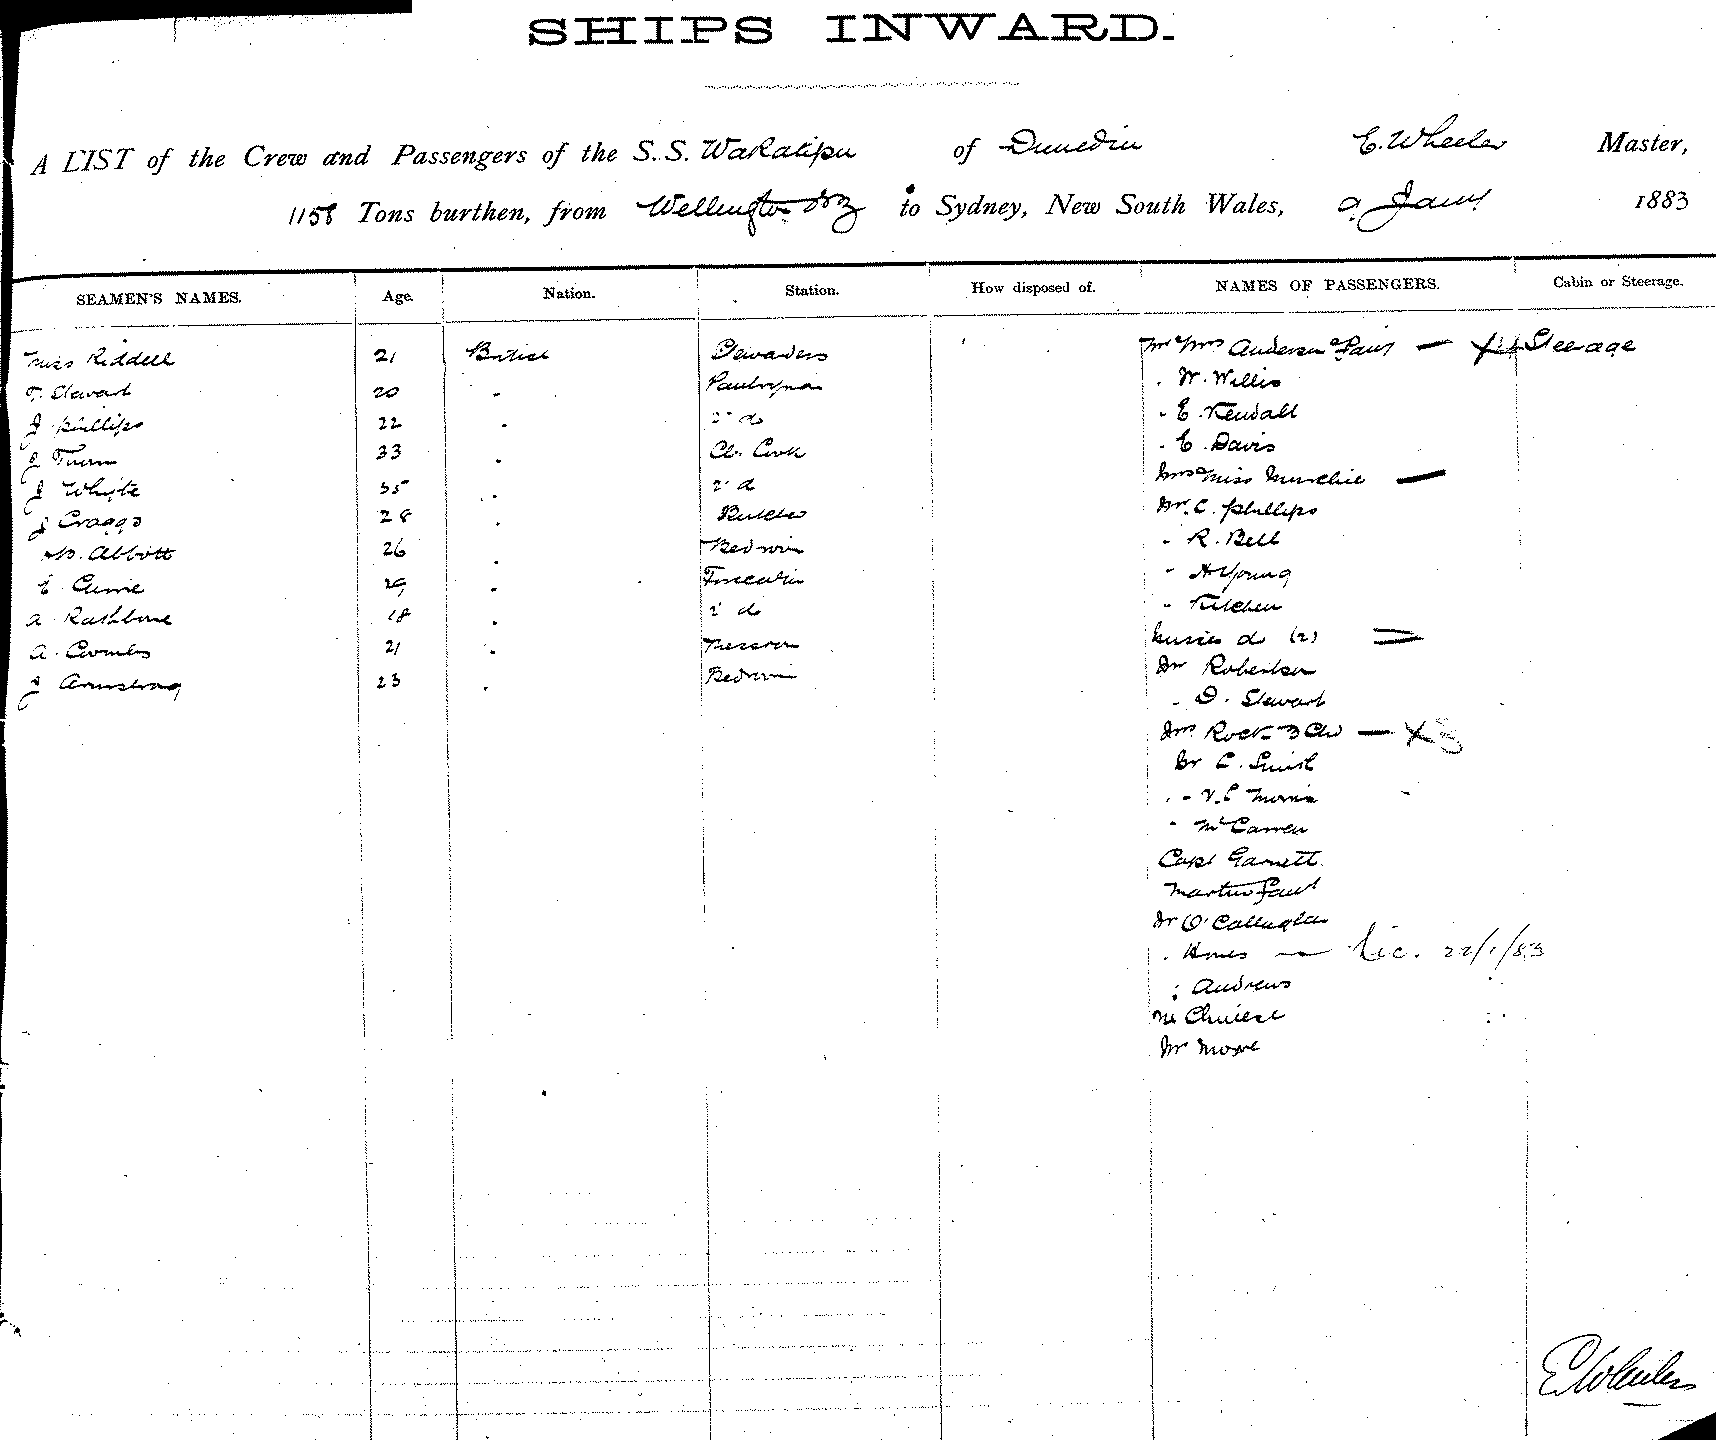 SHIPS INWARD.
A LIST of the Crew and Passengers of the S.S. Wakatipu of Dunedin E. Wheeler Master,
1158 Tons burthen, from Wellington NZ to Sydney, New South Wales, 9 Jany 1883
SEAMEN'S NAMES. Age. Nation. Station. How disposed of. NAMES OF PASSENGERS. Cabin or Steerage.
Miss Riddell 21 British Mr & Mrs Anderson & Famy — Steerage
T. Stewart 20 " Pantryman " W. Willis
J Phillips 22 " " do " E. Kendall
J 33 " Ch. Cook " E. Davis
J Whyte 35 " 2 d Mrs & Miss Murchie —
J Craggs 28 " Butcher Mr. C. Phillips
Abbott 26 " Bedrm " R. Bell
E. 29 " Forecabin " H Young
A. Rathbone 18 " " do " Kitchen
A. Coombs 21 " Messrm do (2)
J Armstrong 23 " Bedrm Mr Robertson
" D. Stewart
Mrs Rock & 3 Ch — X 3
Mr C. Smith
" Morris
" McCarren
Capt Garnett
Martin
Mr O'Callaghan
" — Lic. 22/1/83
" Andrews
Chinese
Mr Moore
E Wheeler